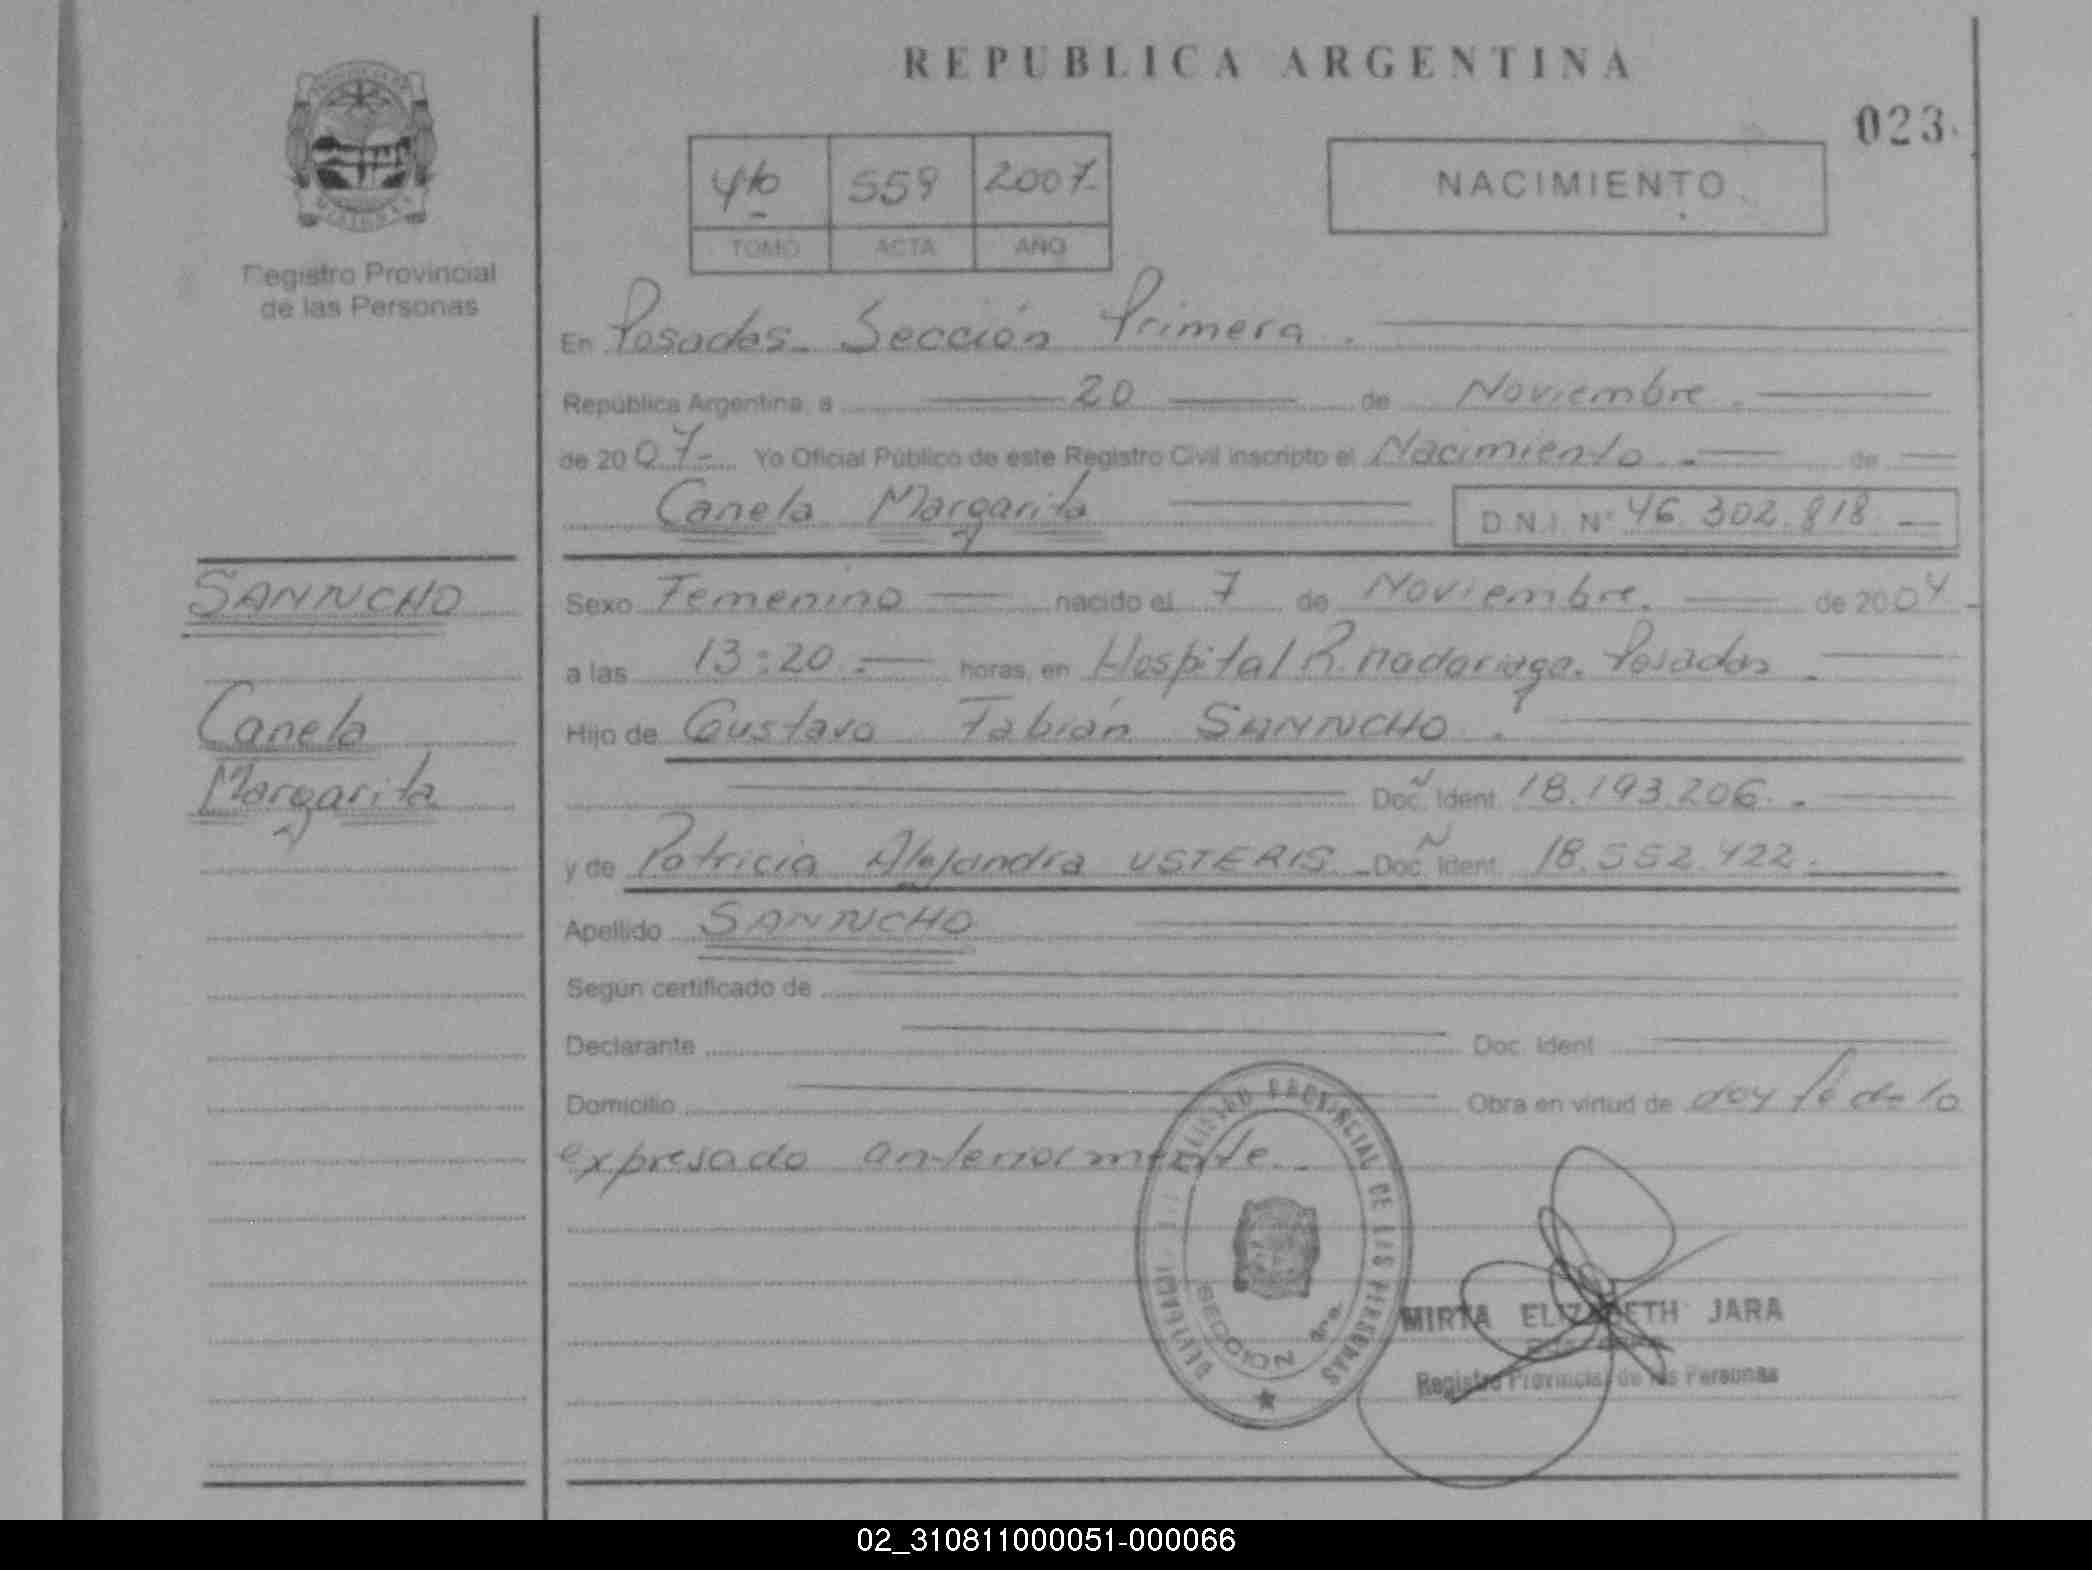 REPUBLICA ARGENTINA
023
559 2007
TOMO ACTA AÑO
NACIMIENTO
Registro Provincial
de las Personas
En Posadas Sección Primera.
República Argentina, a 20 de Noviembre.
de 2007 Yo Oficial Público de este Registro Civil inscripto el Nacimiento de
Canela Margarita D.N.I. Nº 46.302.818
SANNCHO
Canela
Margarita
Sexo Femenino nacido el 7 de Noviembre. de 2004
a las 13:20 horas, en Hospital R. Madariaga. Posadas.
Hijo de Gustavo Fabián SANNCHO.
Doc. Ident. 18.193.206.
y de Patricia Alejandra USTERIS Doc. Ident. 18.552.422.
Apellido SANNCHO
Según certificado de
Declarante Doc. Ident.
Domicilio Obra en virtud de doy fé de lo
expresado anteriormente.
REGISTRO PROVINCIAL DE LAS PERSONAS
SECCION 1ra.
MIRTA ELIZABETH JARA
Registro Provincial de las Personas
02_310811000051-000066